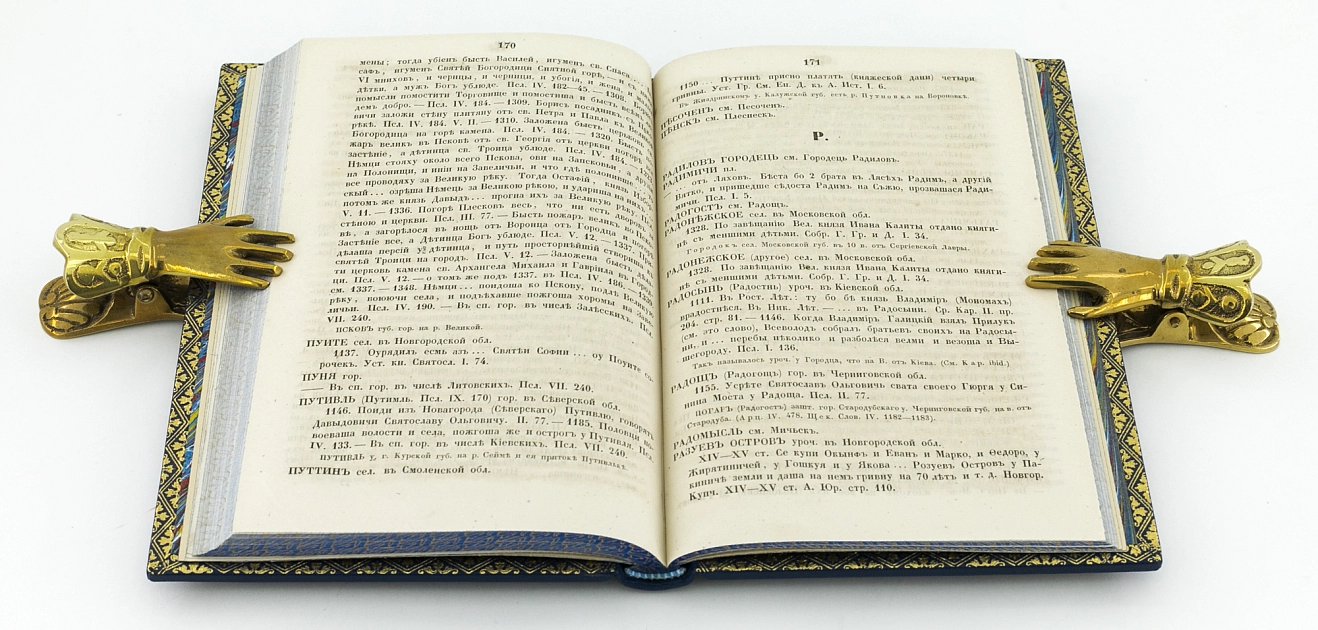 170
мены; тогда убіенъ бысть Василей, игуменъ св. Спаса,
сафъ, игуменъ Святѣй Богородици Снятной горѣ, и съ
VI мниховъ, и чернци, и черници, и убогія, и жена,
дѣтки, а мужь Богъ ублюде. Псл. IV. 182—45. — 1308. Борисъ
помысли помостити Торговище и помостиша и бысть всѣмъ
демъ добро. — Псл. IV. 184. — 1309. Борисъ посадникъ съ
вичи заложи стѣну плитяну отъ св. Петра и Павла къ Ве
рѣкѣ. Псл. IV. 184. V. 11. — 1310. Заложена бысть церковь
Богородица на горѣ камена. Псл. IV. 184. — 1320. Бысть по
жаръ великъ въ Псковѣ отъ св. Георгія отъ церкви погорѣ
застѣніе, а дѣтинца св. Троица ублюде. Псл. IV. 184.
Нѣмци стояху около всего Пскова, ови на Запсковьи, а
на Полонищи, и ніи на Завеличьи, и что гдѣ полонивше,
все проводяху за Великую рѣку. Тогда Остафій, князь
скый... озрѣша Нѣмець за Великою рѣкою, и ударища на
потомъ же князь Давыдъ... прогна ихъ за Великую рѣку. Псл.
V. 11. — 1336. Погорѣ Плесковъ весь, что ни есть дворовъ
стѣною и церкви. Псл. III. 77. — Бысть пожаръ великъ во
вѣ, а загорѣлося въ нощь отъ Воронца отъ Городца и погорѣ
Застѣніе все, а Дѣтинца Богъ ублюде. Псл. V. 12. — 1337.
дѣлаша персій у дѣтинца, и путь просторнѣйшій створиша къ
святѣй Троици на городъ. Псл. V. 12. — Заложена бысть
ти церковь камена св. Архангела Михаила и Гавріила въ Го
ци. Псл. V. 12. — о томъ же подъ 1337. въ Псл. IV. 186. — 1339
см. 1337. — 1348. Нѣмци... поидоша ко Пскову, подлѣ Великую
рѣку, воюючи села, и подъѣхавше пожгоша хоромы на За
личьи. Псл. IV. 190. — Въ сп. гор. въ числѣ Залѣсскихъ. Псл.
VII. 240.
ПСКОВЪ губ. гор. на р. Великой.
ПУИТЕ сел. въ Новгородской обл.
1137. Оурядилъ есмь азъ... Святѣи Софии... оу Поуите со-
рочекъ. Уст. кн. Святосл. I. 74.
ПУНЯ гор.
—— Въ сп. гор. въ числѣ Литовскихъ. Псл. VII. 240.
ПУТИВЛЬ (Путимль. Псл. IX. 170) гор. въ Сѣверской обл.
1146. Поиди изъ Новагорода (Сѣверскаго) Путивлю, говорятъ
Давыдовичи Святославу Ольговичу. П. 77. — 1185. Половци
воеваша волости и села, пожгоша же и острогъ у Путивля. Псл.
IV. 133. — Въ сп. гор. въ числѣ Кіевскихъ. Псл. VII. 240.
ПУТИВЛЬ у. г. Курской губ. на р. Сеймѣ и ея притокѣ Путивлькѣ.
ПУТТИНЪ сел. въ Смоленской обл.
171
1150 ... Путтинѣ присно платятъ (княжеской дани) четыри
гривны. Уст. Гр. См. Еп. Д. къ А. Ист. I. 6.
Въ Жиздринскомъ у. Калужской губ. есть р. Путновка на Вороновкѣ.
ПѢСОЧЕНЪ см. Песоченъ.
ПѢНСКЪ см. Плеснескъ.
Р.
РАДИЛОВЪ ГОРОДЕЦЬ см. Городець Радиловъ.
РАДИМИЧИ пл.
... отъ Ляховъ. Бѣста бо 2 брата в Лясѣхъ Радимъ, а другій
Вятко, и пришедше сѣдоста Радимъ на Съжю, прозвашася Ради-
мичи. Псл. I. 5.
РАДОГОСТЪ см. Радощъ.
РАДОНѢЖСКОЕ сел. въ Московской обл.
1328. По завѣщанію Вел. князя Ивана Калиты отдано княги-
нѣ съ меншими дѣтьми. Собр. Г. Гр. и Д. I. 34.
Городокъ сел. Московской губ. въ 10 в. отъ Сергіевской Лавры.
РАДОНЕЖСКОЕ (другое) сел. въ Московской обл.
1328. По завѣщанію Вел. князя Ивана Калиты отдано княги-
нѣ съ меншими дѣтьми. Собр. Г. Гр. и Д. I. 34.
РАДОСЫНЬ (Радостнь) уроч. въ Кіевской обл.
1111. Въ Рост. Лѣт.: ту бо бѣ князь Владиміръ (Мономахъ)
врадостнѣся. Въ Ник. Лѣт. — ... въ Радосыни. Ср. Кар. II. пр.
204. стр. 81. — 1146. Когда Владиміръ Галицкій взялъ Прилукъ
(см. это слово), Всеволодъ собралъ братьевъ своихъ на Радосы-
ни, и ... перебы нѣколико и разболѣся велми и везоша и Вы-
шегороду. Псл. I. 136.
Такъ называлось уроч. у Городца, что на В. отъ Кіева. (См. Кар. ibid.)
РАДОЩЪ (Радогощъ) гор. въ Черниговской обл.
1155. Усрѣте Святославъ Ольговичь свата своего Гюрга у Си-
нина Моста у Радоща. Псл. II. 77.
ПОГАРЪ (Радогостъ) зашт. гор. Стародубскаго у. Черниговской губ. на в. отъ
Стародуба. (Арц. IV. 478. Щек. Слов. IV. 1182—1183).
РАДОМЫСЛЬ см. Мичьскъ.
РАЗУЕВЪ ОСТРОВЪ уроч. въ Новгородской обл.
XIV—XV ст. Се купи Окынфъ и Еванъ и Марко, и Ѳедоро, у
Жирятиничей, у Гошкуя и у Якова ... Розуевъ Островъ у Па-
киничѣ земли и даша на немъ гривну на 70 лѣтъ и т. д. Новгор.
Купч. XIV—XV ст. А. Юр. стр. 110.